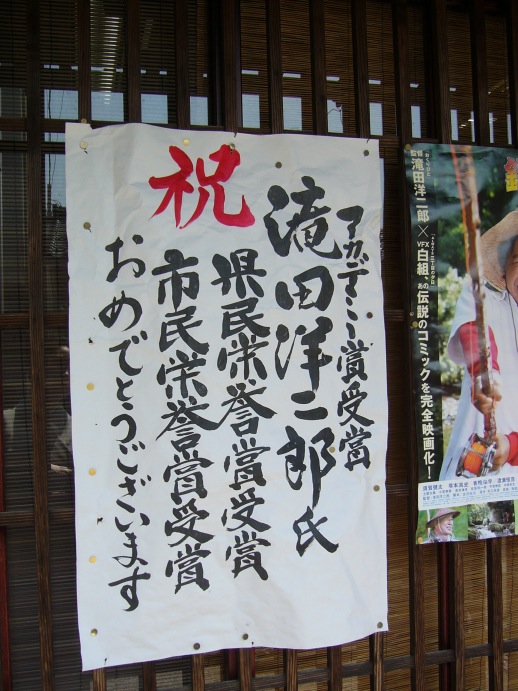 祝
アカデミー賞受賞
滝田洋二郎氏
県民栄誉賞受賞
市民栄誉賞受賞
おめでとうございます
おくりびと
監督滝田洋二郎×VFX白組。あの伝説のコミックを完全映画化!